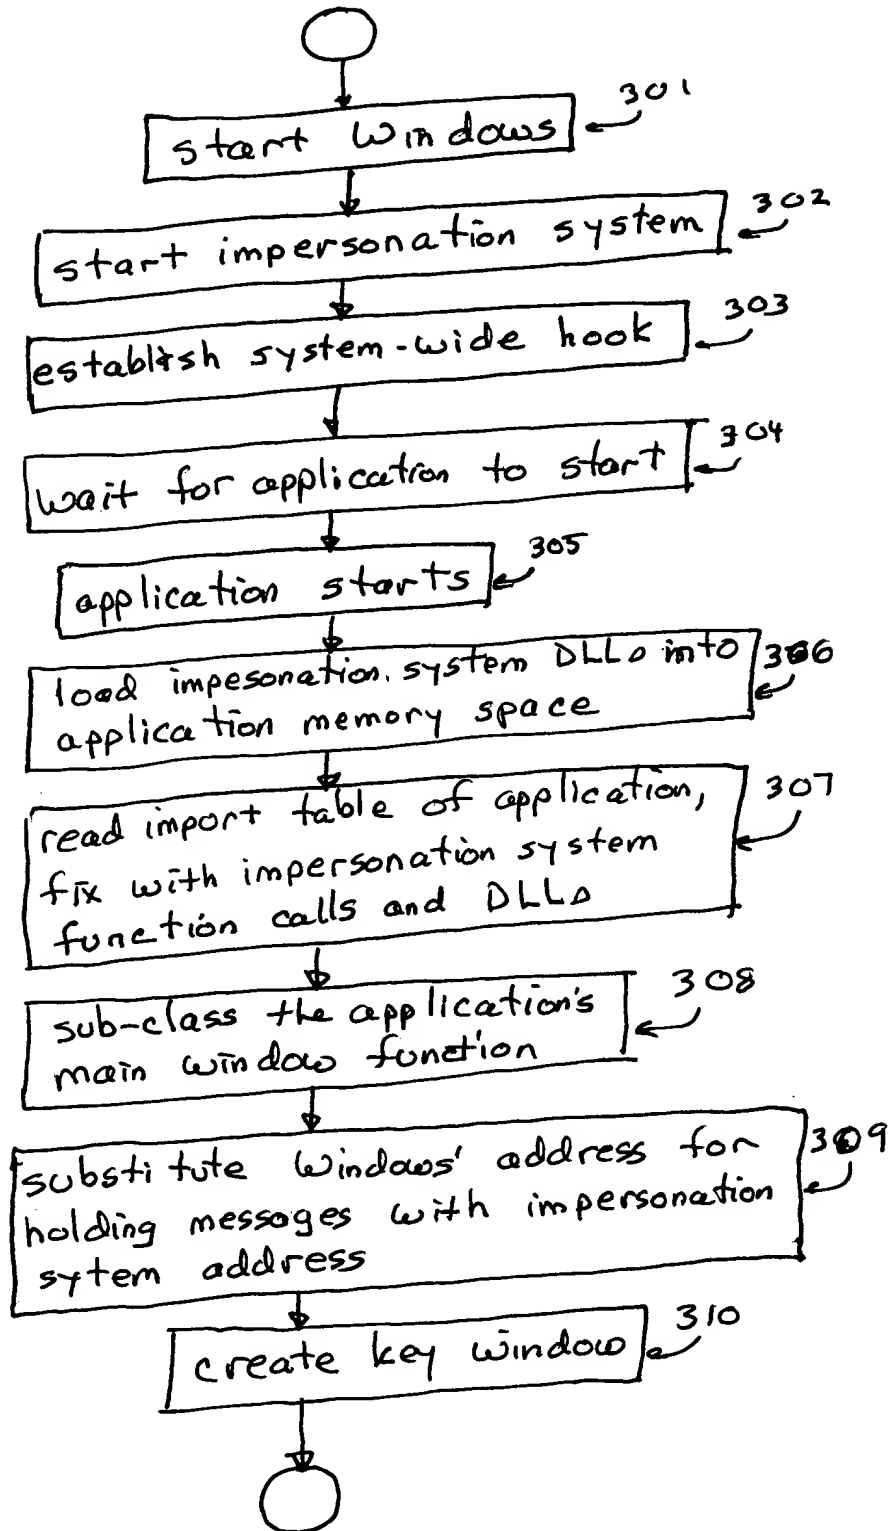 301
start Windows
302
start impersonation system
303
establish system-wide hook
304
wait for application to start
305
application starts
306
load impesonation system DLLs into
application memory space
307
read import table of application,
fix with impersonation system
function calls and DLLs
308
sub-class the application's
main window function
309
substitute Windows' address for
holding messages with impersonation
sytem address
310
create key window